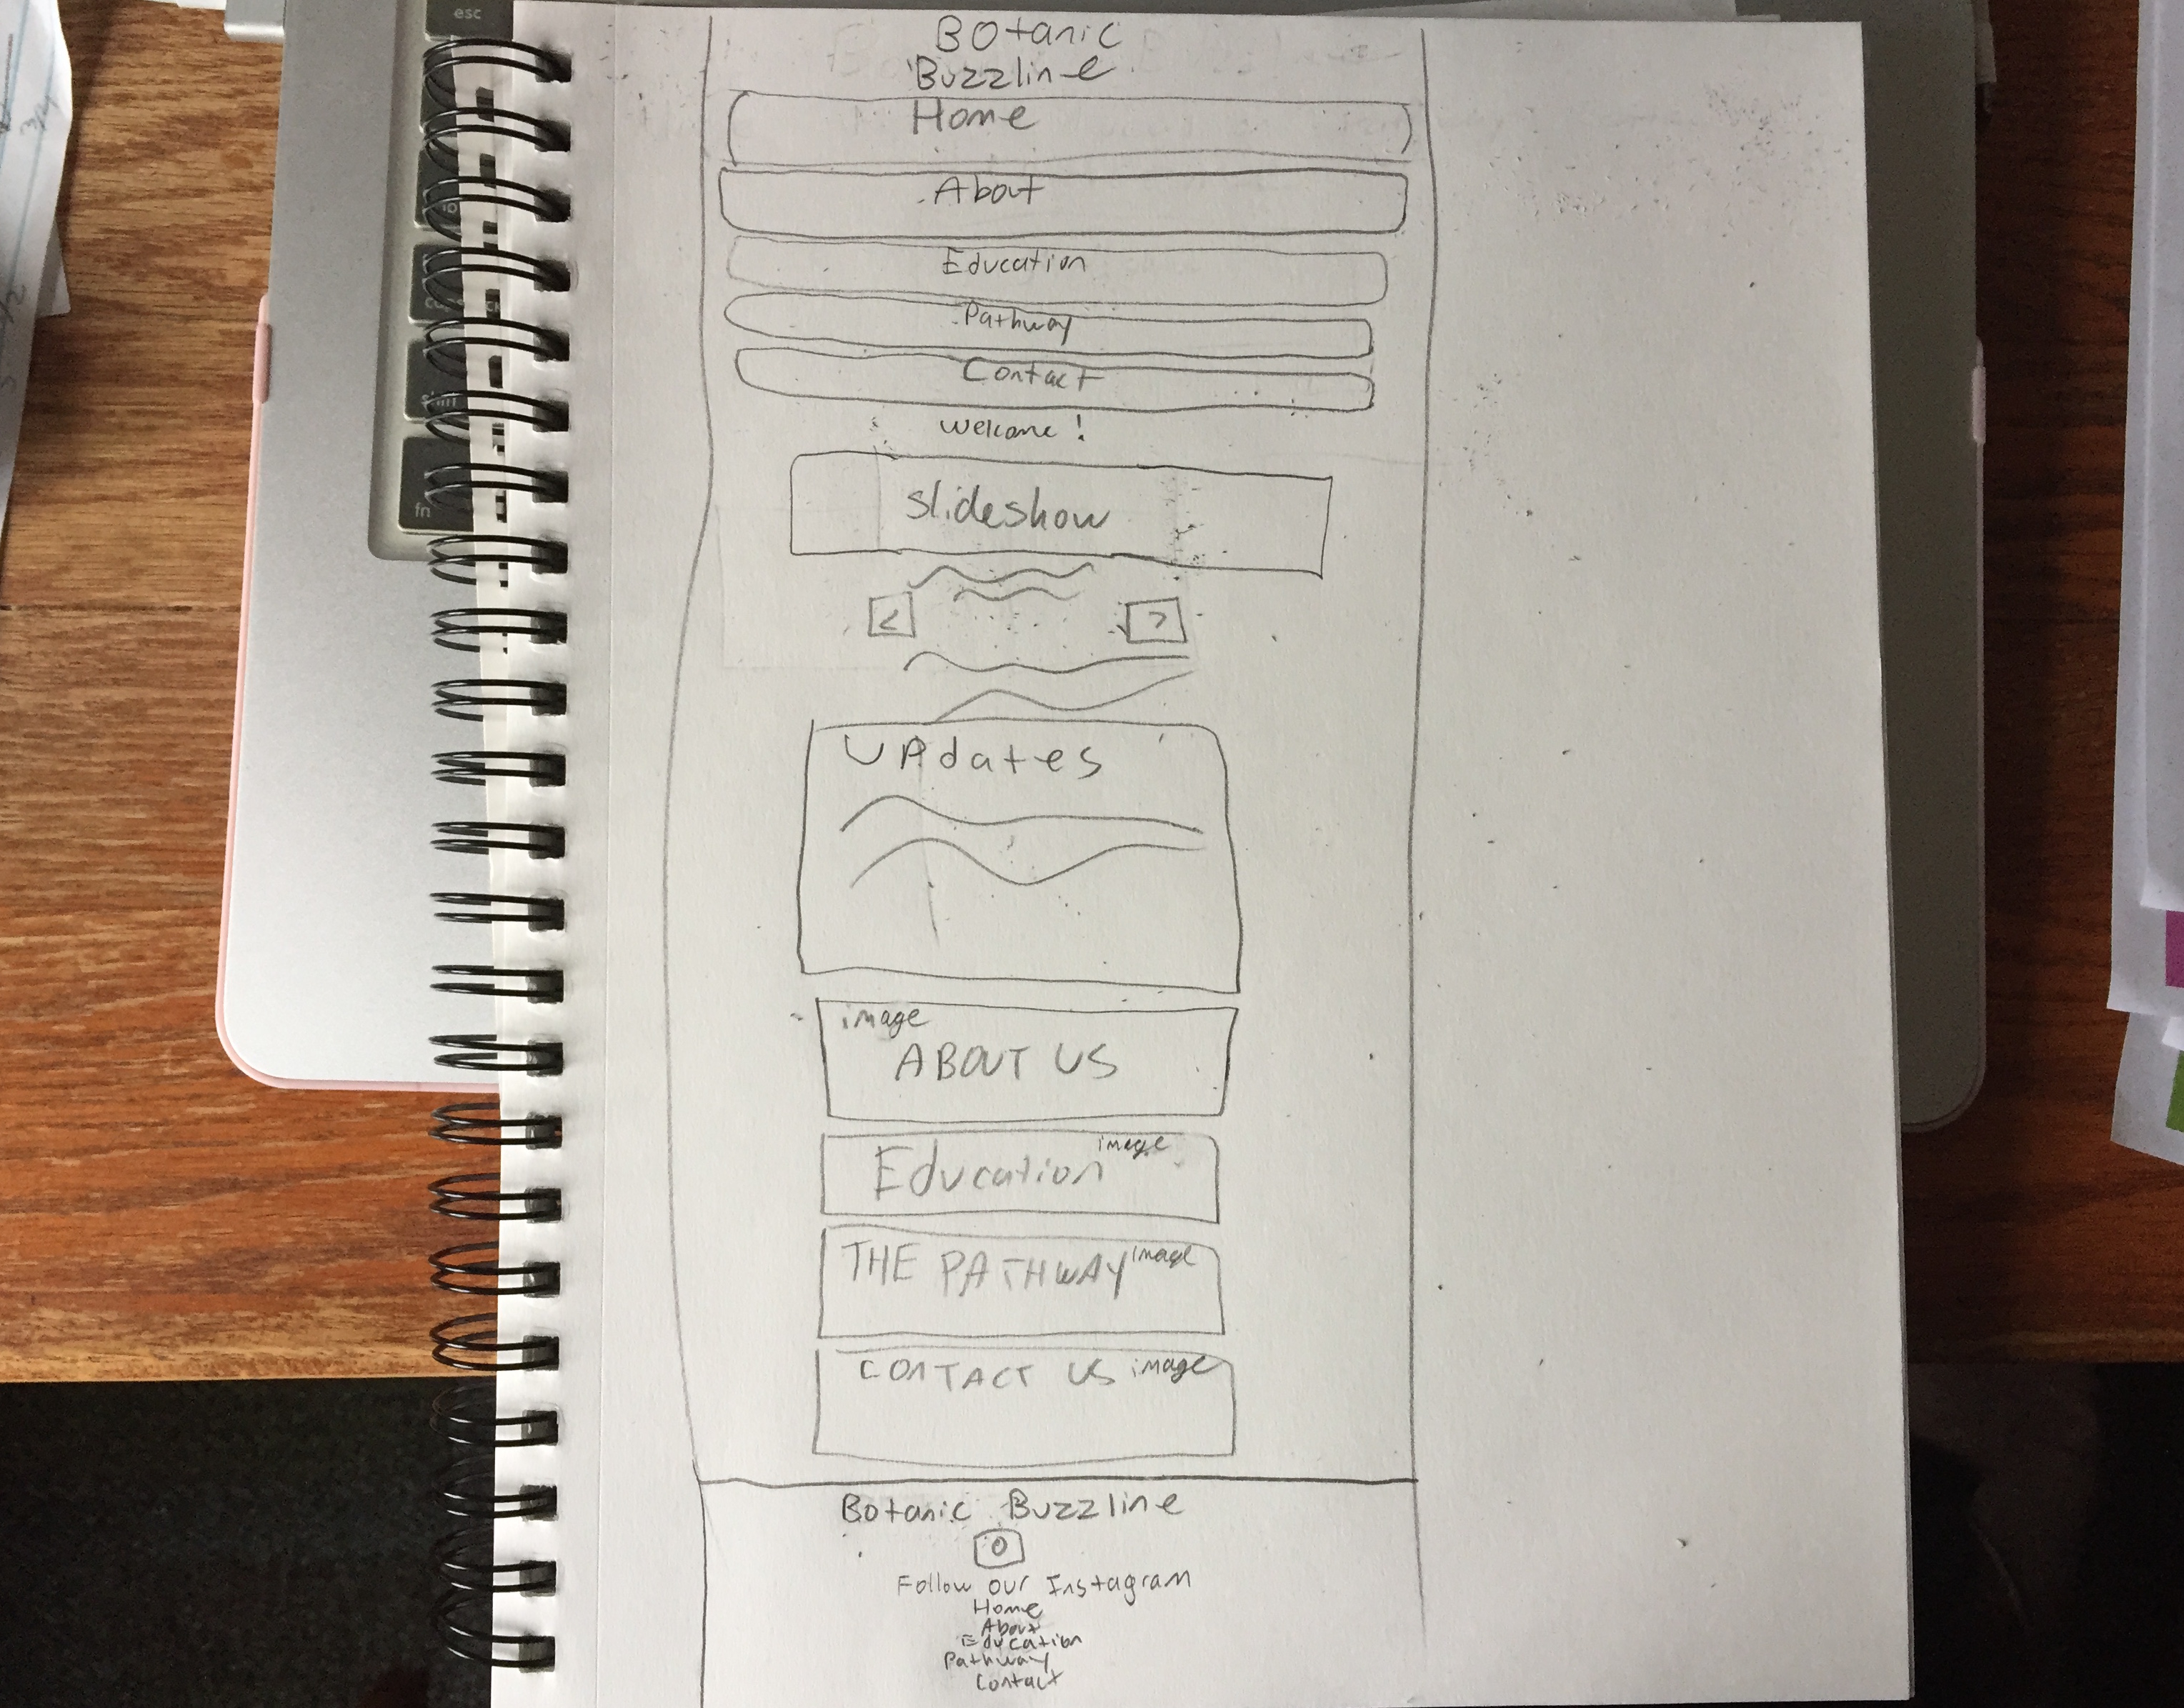 esc
fn
BOtanic
Buzzline
Home
About
Education
Pathway
Contact
welcome!
slideshow
<
>
UPdates
image
ABOUT US
image
Education
THE PATHWAY image
CONTACT US image
Botanic Buzzline
Follow our Instagram
Home
About
Education
Pathway
Contact